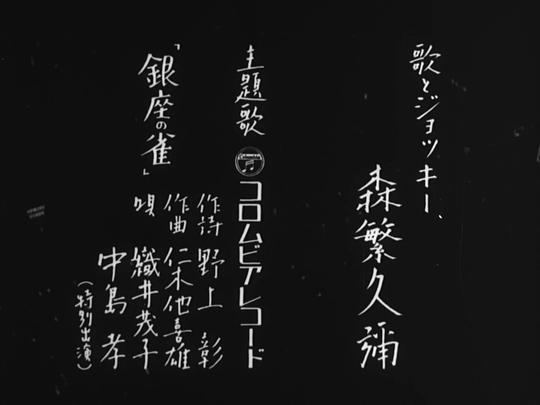 歌とジョッキー、
森繁久彌
主題歌
コロムビアレコード
「銀座の雀」
作詩 野上 彰
作曲 仁木他喜雄
唄 織井茂子
中島 孝
(特別出演)